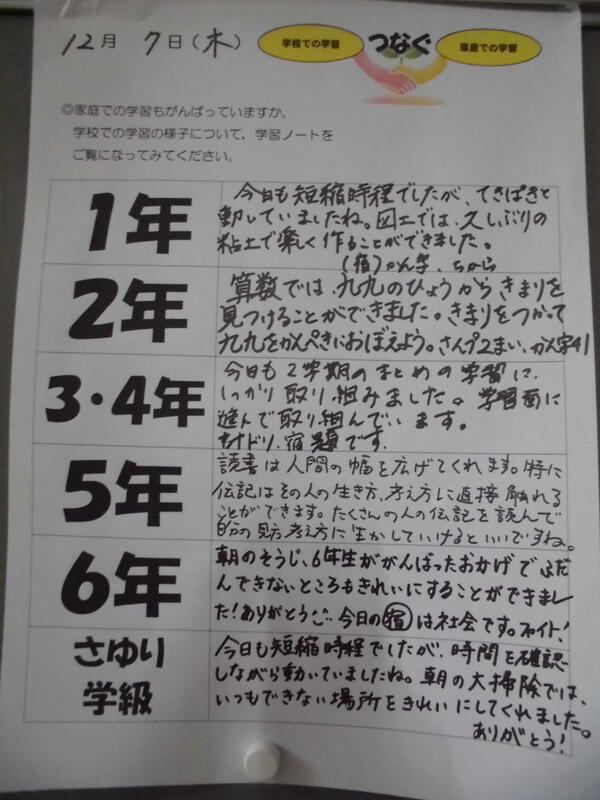 12月 7日(木)
学校での学習 つなぐ 家庭での学習
◎家庭での学習もがんばっていますか。
学校での学習の様子について、学習ノートを
ご覧になってみてください。
1年
今日も短縮時程でしたが、てきぱきと
動いていましたね。図工では、久しぶりの
粘土で楽しく作ることができました。
(宿)かん字、ちから
2年
算数では、九九のひょうからきまりを
見つけることができました。きまりをつかって
九九をかんぺきにおぼえよう。さんプ2まい、かん字41
3・4年
今日も2学期のまとめの学習に、
しっかり取り組みました。学習面に
進んで取り組んでいます。
宿題です。
5年
読書は人間の幅を広げてくれます。特に
伝記はその人の生き方、考え方に直接触れる
ことができます。たくさんの人の伝記を読んで
自分の見方、考え方に生かしていけるといいですね。
6年
朝のそうじ、6年生ががんばったおかげでふだ
んできないところもきれいにすることができまし
た!ありがとう 今日の宿は社会です。ファイト!
さゆり
学級
今日も短縮時程でしたが、時間を確認
しながら動いていましたね。朝の大掃除では、
いつもできない場所をきれいにしてくれました。
ありがとう!